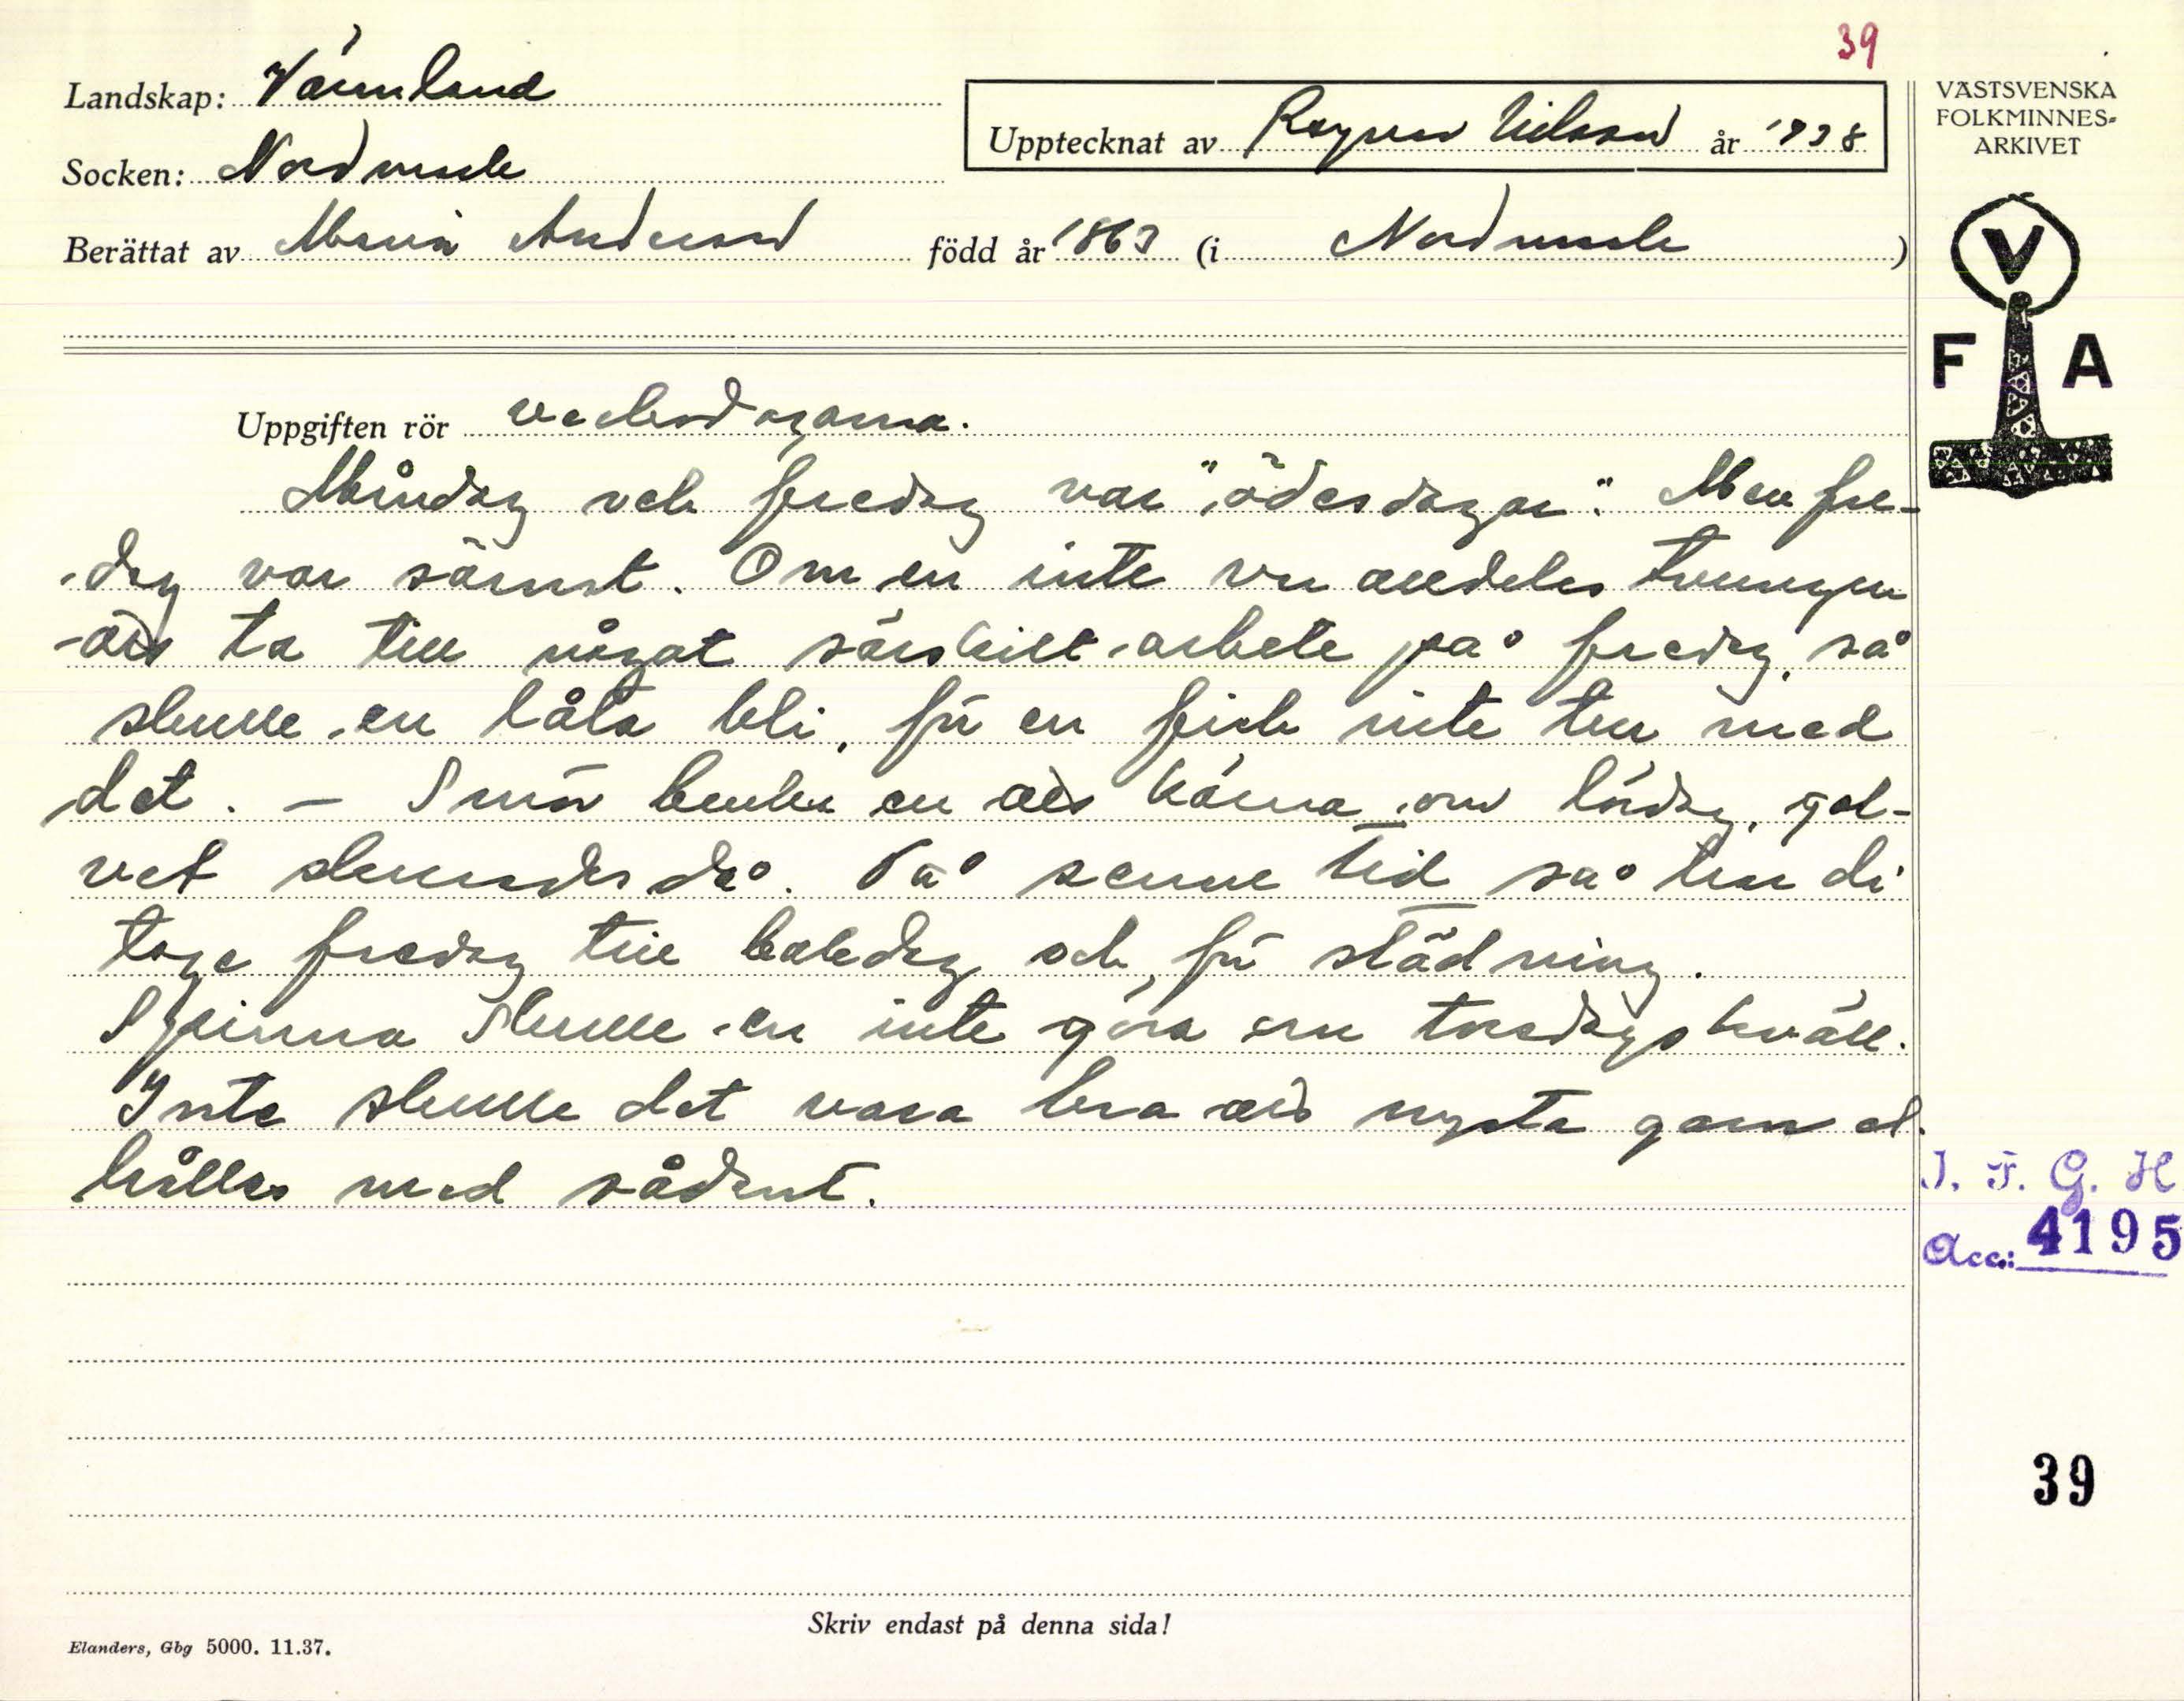 39
Landskap: Värmland
Upptecknat av Ragnar Nilsson år 1938
VÄSTSVENSKA
FOLKMINNES-
ARKIVET
Socken: Nordmark
Berättat av Maria Andersson född år 1863 (i Nordmark)
V
F A
Uppgiften rör veckodagarna.
Måndag och fredag var "ödesdagar". Men fre-
dag var särnst. Om en inte var alldeles tvungen
att ta till något särskilt arbete på fredag, så
skulle en låta bli, för en fick inte tur med
det. – Smör bruka en att kärna om lördag, gol-
vet skurades då. På senne tid så har di
tage fredag till bakdag och för städning.
Spinna skulle en inte göra om torsdagskväll.
Inte skulle det vara bra att nysta garn el.
hålles med sådant.
J. F. G. H
Acc.: 4195
39
Skriv endast på denna sida!
Elanders, Gbg 5000. 11.37.